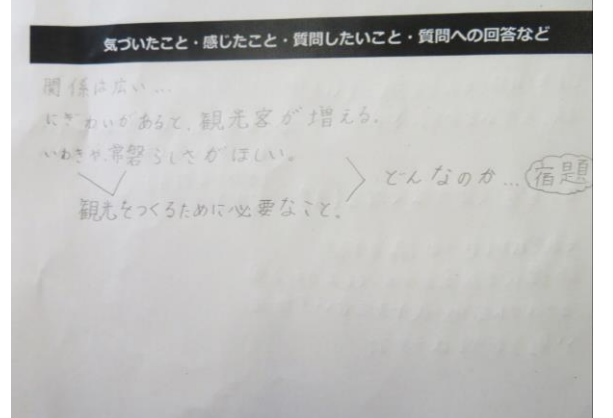 気づいたこと・感じたこと・質問したいこと・質問への回答など
関係は広い…
にぎわいがあると、観光客が増える。
いわきや、常磐らしさがほしい。
どんなのか…宿題
観光をつくるために必要なこと。